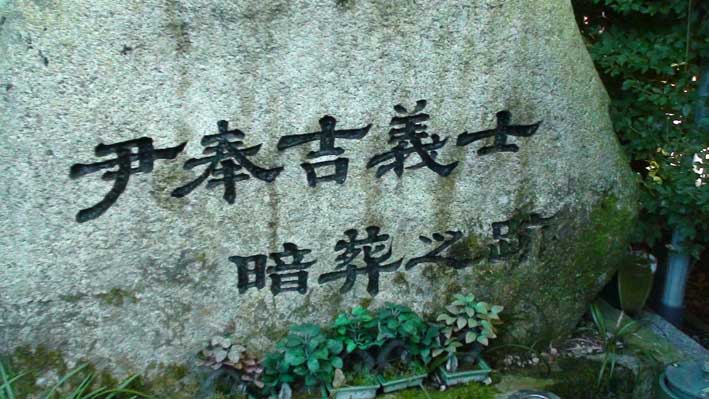 尹奉吉義士
暗葬之跡